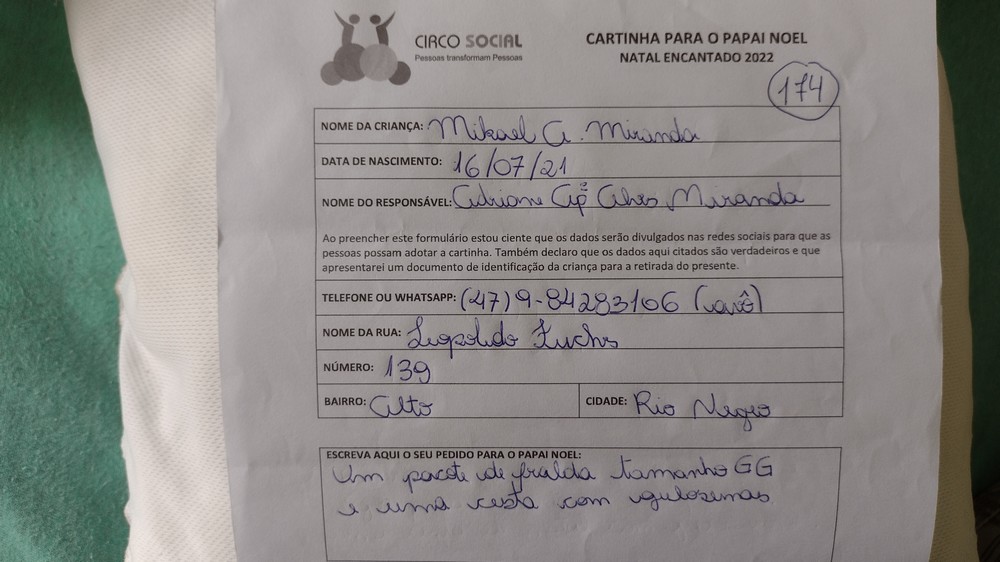 CIRCO SOCIAL
Pessoas transformam Pessoas
CARTINHA PARA O PAPAI NOEL
NATAL ENCANTADO 2022
174
NOME DA CRIANÇA: Mikael A. Miranda
DATA DE NASCIMENTO: 16/07/21
NOME DO RESPONSÁVEL: Adriane Apª Alves Miranda
Ao preencher este formulário estou ciente que os dados serão divulgados nas redes sociais para que as
pessoas possam adotar a cartinha. Também declaro que os dados aqui citados são verdadeiros e que
apresentarei um documento de identificação da criança para a retirada do presente.
TELEFONE OU WHATSAPP: (47) 9-84283106 (vovô)
NOME DA RUA: Leopoldo Fuchs
NÚMERO: 139
BAIRRO: Alto CIDADE: Rio Negro
ESCREVA AQUI O SEU PEDIDO PARA O PAPAI NOEL:
Um pacote de fralda tamanho GG
e uma cesta com guloseimas